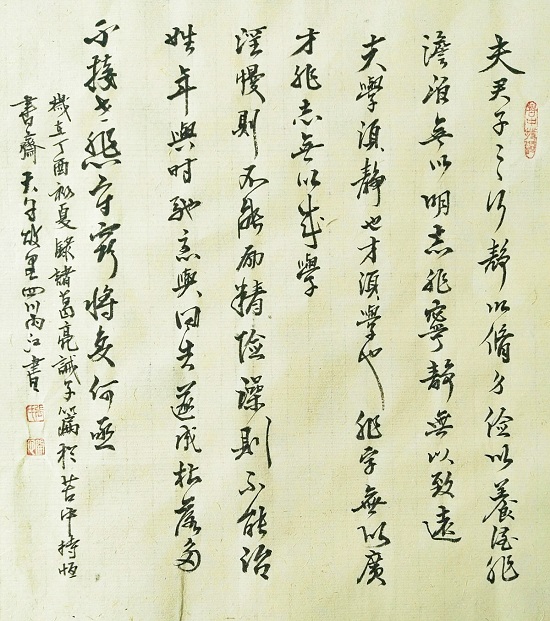 夫君子之行靜以脩身儉以養德非
澹泊無以明志非寧靜無以致遠
夫學須靜也才須學也非學無以廣
才非志無以成學
淫慢則不能精險躁則不能治
性年與时馳意與日去遂成枯落多
不接世悲守窮將复何及
歲在丁酉初夏錄諸葛亮誡子篇於苦中持恒
書齋故里四川內江書